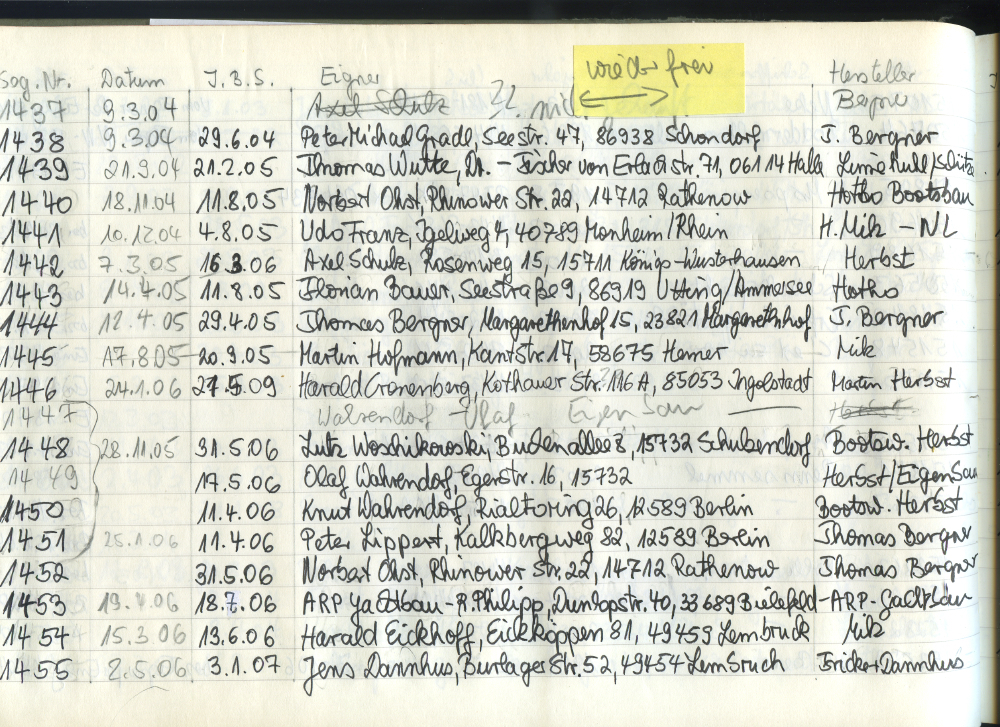 wieder frei
Seg. Nr. Datum J.B.S. Eigner Hersteller
1437 9.3.04 Axel Schulz Bergner
1438 9.3.04 29.6.04 Peter Michael Gradl, Seestr. 47, 86938 Schondorf J. Bergner
1439 21.9.04 21.2.05 Thomas Wutte, Dr. - Fischer von Erlach str. 71, 06114 Halle
1440 18.11.04 11.8.05 Norbert Ohst, Rhinower Str. 22, 14712 Rathenow Hotho Bootsbau
1441 10.12.04 4.8.05 Udo Franz, Igelweg 4, 40789 Monheim/Rhein H. Mik - NL
1442 7.3.05 16.3.06 Axel Schulz, Rosenweg 15, 15711 Königs-Wusterhausen Herbst
1443 14.4.05 11.8.05 Florian Bauer, Seestraße 9, 86919 Utting/Ammersee Hotho
1444 12.4.05 29.4.05 Thomas Bergner, Margarethenhof 15, 23821 Margarethnhof J. Bergner
1445 17.8.05 20.9.05 Martin Hofmann, Kantstr. 17, 58675 Hemer Mik
1446 24.1.06 27.5.09 Harald Cronenberg, Kothauer Str. 116 A, 85053 Ingolstadt Martin Herbst
1447 Wahrendorf Olaf Eigenbau Herbst
1448 28.11.05 31.5.06 Lutz Woschikowski, Buchenallee 8, 15732 Schulzendorf Bootsw. Herbst
1449 17.5.06 Olaf Wahrendorf, Egerstr. 16, 15732 Herbst/Eigenbau
1450 11.4.06 Knut Wahrendorf, Rialtoring 26, 12589 Berlin Bootsw. Herbst
1451 25.1.06 11.4.06 Peter Lippert, Kalkbergweg 82, 12589 Berlin Thomas Bergner
1452 31.5.06 Norbert Ohst, Rhinower Str. 22, 14712 Rathenow Thomas Bergner
1453 19.4.06 18.7.06 ARP Yachtbau - R. Philipp, Dunlopstr. 40, 33689 Bielefeld - ARP-Yachtbau
1454 15.3.06 13.6.06 Harald Eickhoff, Eickköppen 81, 49459 Lembruck Mik
1455 8.5.06 3.1.07 Jens Dannhus, Burlager Str. 52, 49454 Lembruch Fricke Dannhus